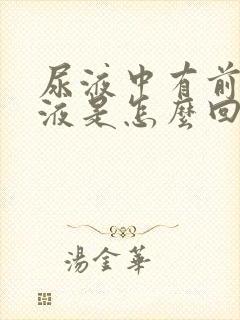 尿液中有前
液是怎麼回
湯金華